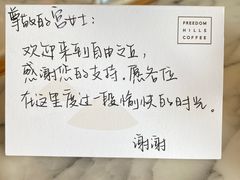 尊敬的宫女士：
FREEDOM
HILLS
COFFEE
欢迎来到自由之丘，
感谢您的支持。愿各位
在这里度过一段愉快的时光。
谢谢